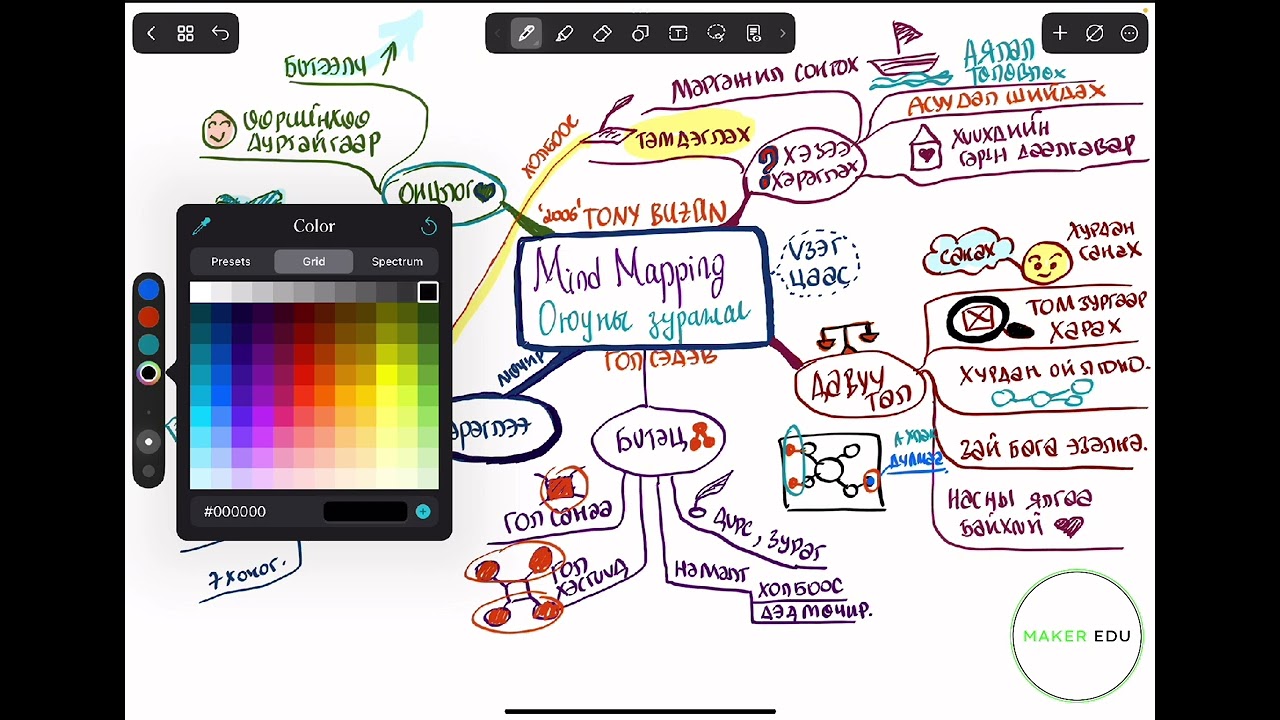 БИТЭЭЛЧ
ӨӨРИЙНХӨӨ
ДУРТАЙГААР
ОНЦЛОГ
ХОЛБООС
МЭРГЭЖИЛ СОНГОХ
ТЭМДЭГЛЭХ
? ХЭЗЭЭ
ХЭРЭГЛЭХ
АЯЛАЛ
ТӨЛӨВЛӨХ
АСУУДАЛ ШИЙДЭХ
ХҮҮХДИЙН
ГЭРИЙН ДААЛГАВАР
"2006" TONY BUZAN
Mind Mapping
Оюуны зураглал
ГОЛ СЭДЭВ
ҮЗЭГ
ЦААС
МӨЧИР
Color
Presets
Grid
Spectrum
#000000
САНАХ
ХУРДАН
САНАХ
ТОМ ЗУРГААР
ХАРАХ
ДАВУУ
ТАЛ
ХУРДАН ОЙЛГОНО.
ЗАЙ БАГА ЭЗЭЛНЭ.
НАСНЫ ЯЛГАА
БАЙХГҮЙ
БҮТЭЦ
ГОЛ САНАА
ГОЛ
ХЭСГҮҮД
ДҮРС, ЗУРАГ
НЭМЭЛТ
ХОЛБООС
ДЭД МӨЧИР.
7 ХОНОГ.
MAKER EDU